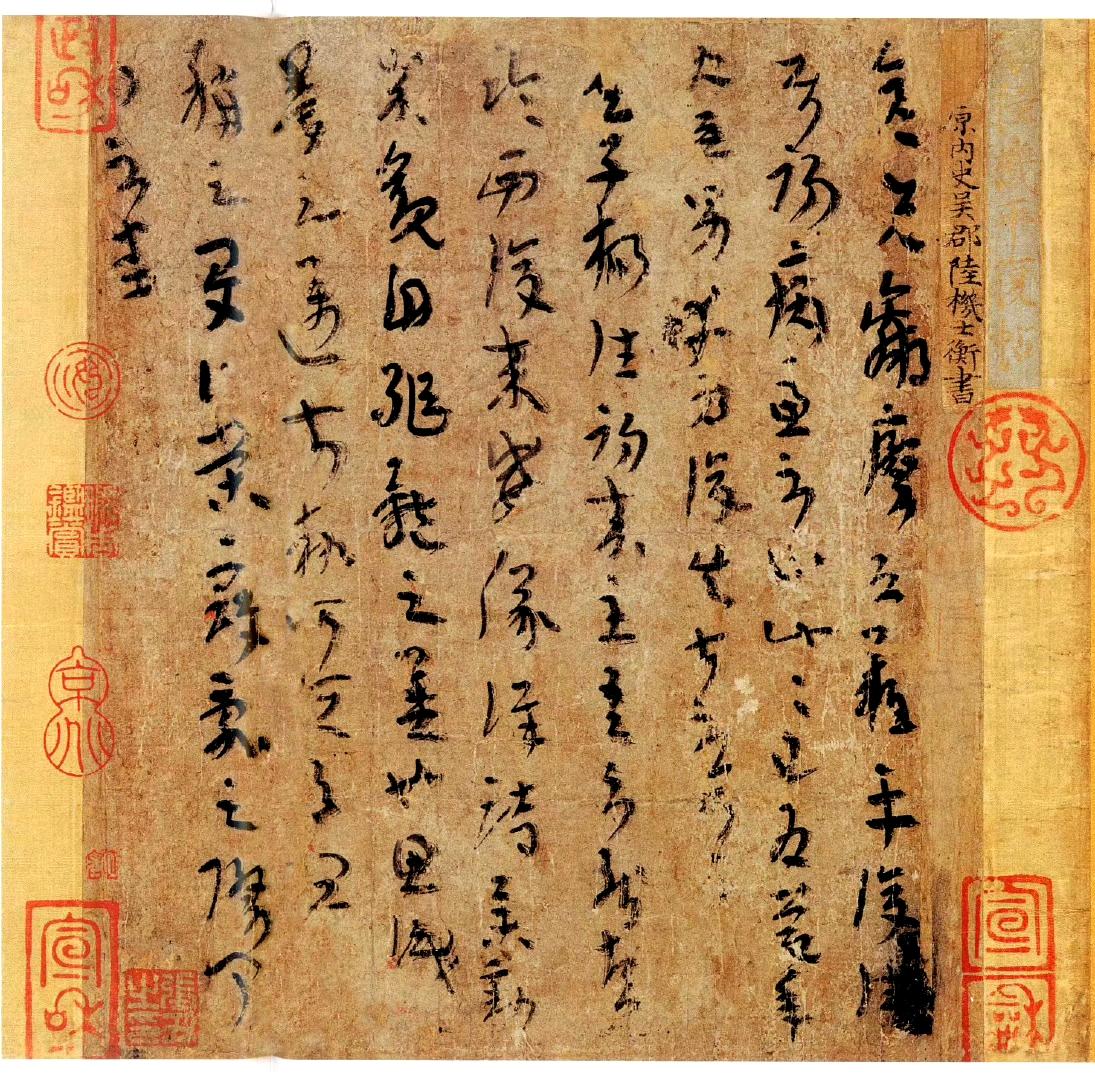 晉內史吳郡陸機士衡書
彦先羸瘵恐難平復往
屬初病慮不止此此已為慶承
使唯男幸為復失前憂耳
吳子楊往初來主吾不能盡
臨西復來威儀詳跱舉動
成觀自軀體之美也思識
量之邁前執所恒有宜
稱之夏伯榮寇亂之際聞問
不悉
宣和
政和